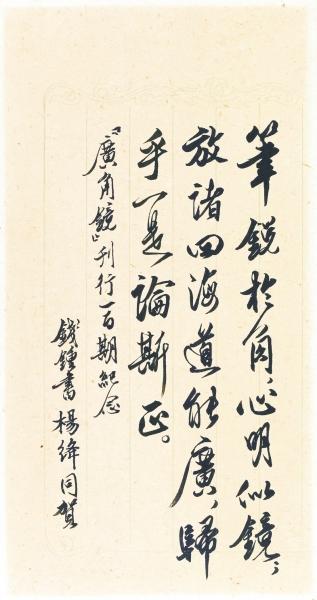 筆銳於角，心明似鏡；
放諸四海道能廣，歸
乎一是論斯正。
『廣角鏡』刊行一百期紀念
錢鍾書楊絳同賀